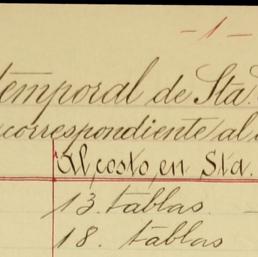 - 1 -
temporal de Sta.
correspondiente al
Al costo, en Sta.
13. tablas.
18. tablas